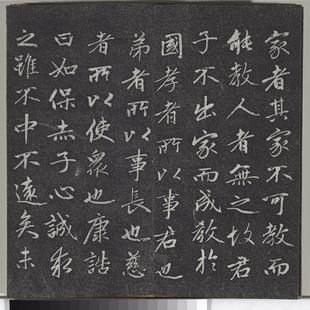 家者其家不可教而
能教人者無之故君
子不出家而成教於
國孝者所以事君也
弟者所以事長也慈
者所以使衆也康誥
曰如保赤子心誠求
之雖不中不遠矣未